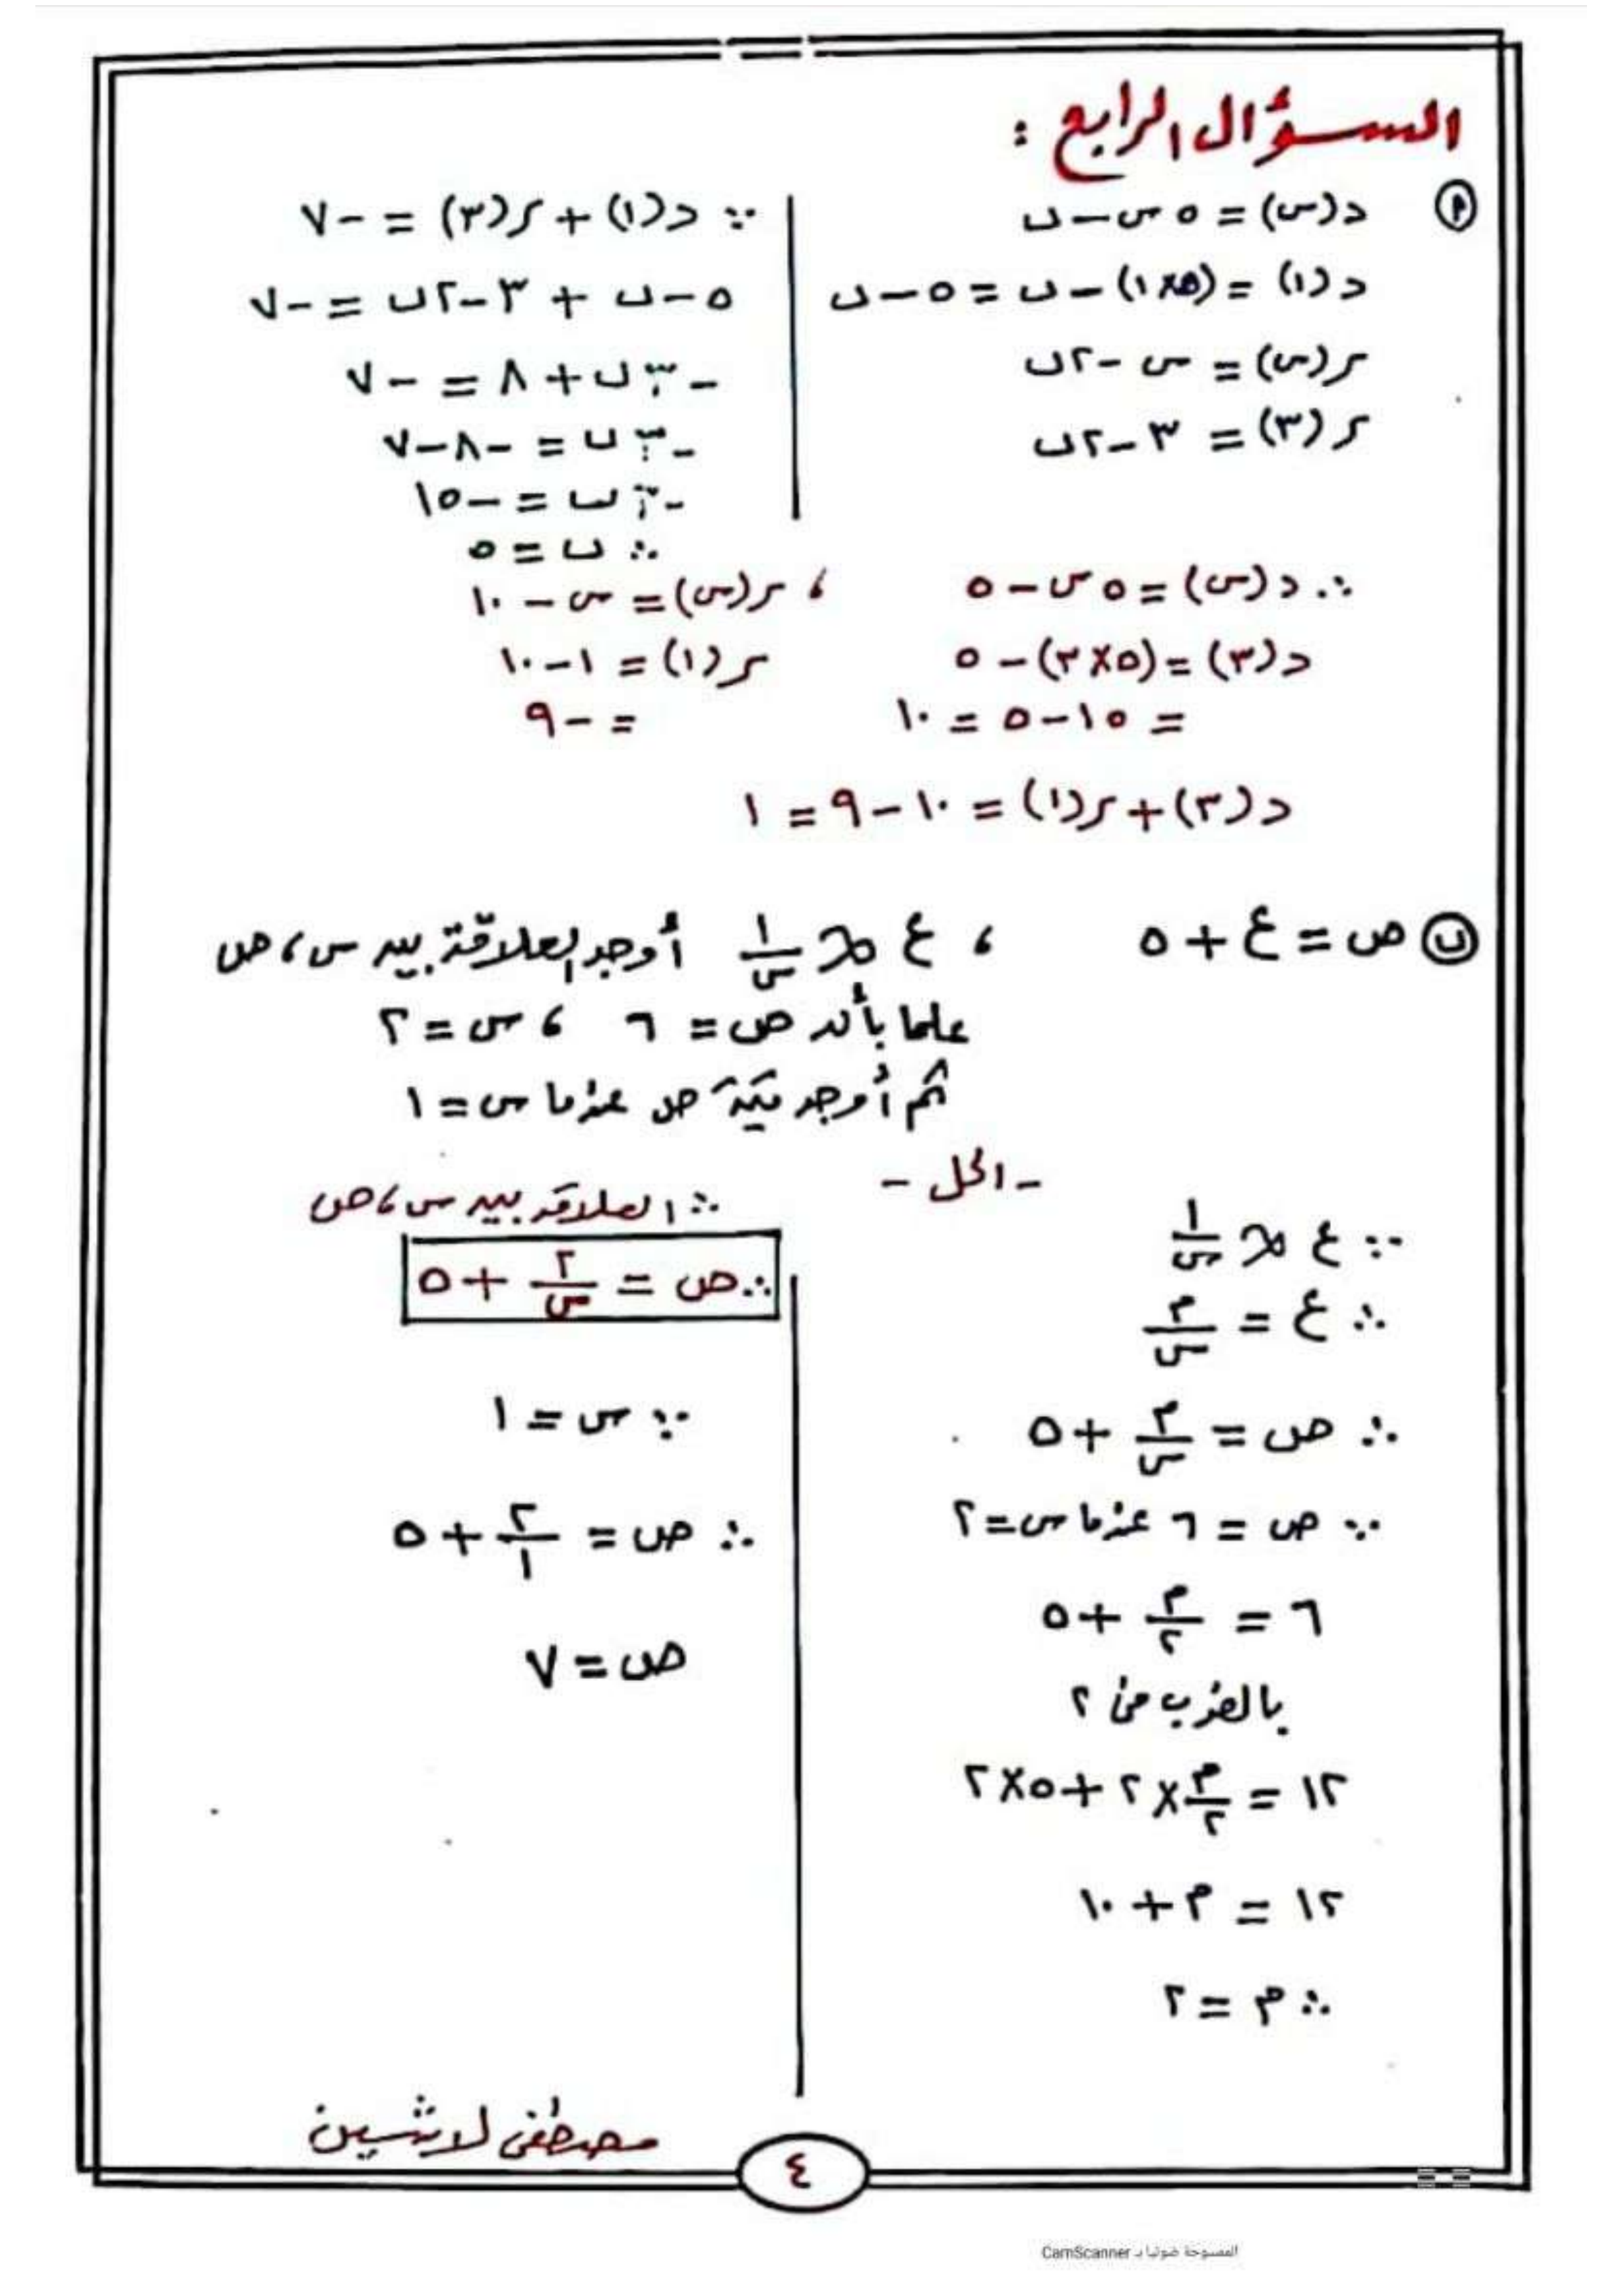 السؤال الرابع :
أ د(س) = ٥ س - ب
د(١) = (٥×١) - ب = ٥ - ب
ر(س) = س - ٢ب
ر(٣) = ٣ - ٢ب
∵ د(١) + ر(٣) = -٧
٥ - ب + ٣ - ٢ب = -٧
-٣ب + ٨ = -٧
-٣ب = -٨-٧
-٣ب = -١٥
∴ ب = ٥
∴ د(س) = ٥س - ٥ ، ر(س) = س - ١٠
د(٣) = (٥×٣) - ٥ ر(١) = ١ - ١٠
= ١٥ - ٥ = ١٠ = -٩
د(٣) + ر(١) = ١٠ - ٩ = ١
ب ص = ع + ٥ ، ع ∝ ١/س أوجد العلاقة بين س ، ص
علما بأن ص = ٦ ، س = ٢
ثم أوجد قيمة ص عندما س = ١
- الحل -
∵ ع ∝ ١/س
∴ ع = م/س
∴ ص = م/س + ٥
∵ ص = ٦ عندما س = ٢
٦ = م/٢ + ٥
بالضرب في ٢
١٢ = م/٢ × ٢ + ٥×٢
١٢ = م + ١٠
∴ م = ٢
∴ العلاقة بين س ، ص
∴ ص = ٢/س + ٥
∵ س = ١
∴ ص = ٢/١ + ٥
ص = ٧
مصطفى لاشين
٤
الممسوحة ضوئيا بـ CamScanner